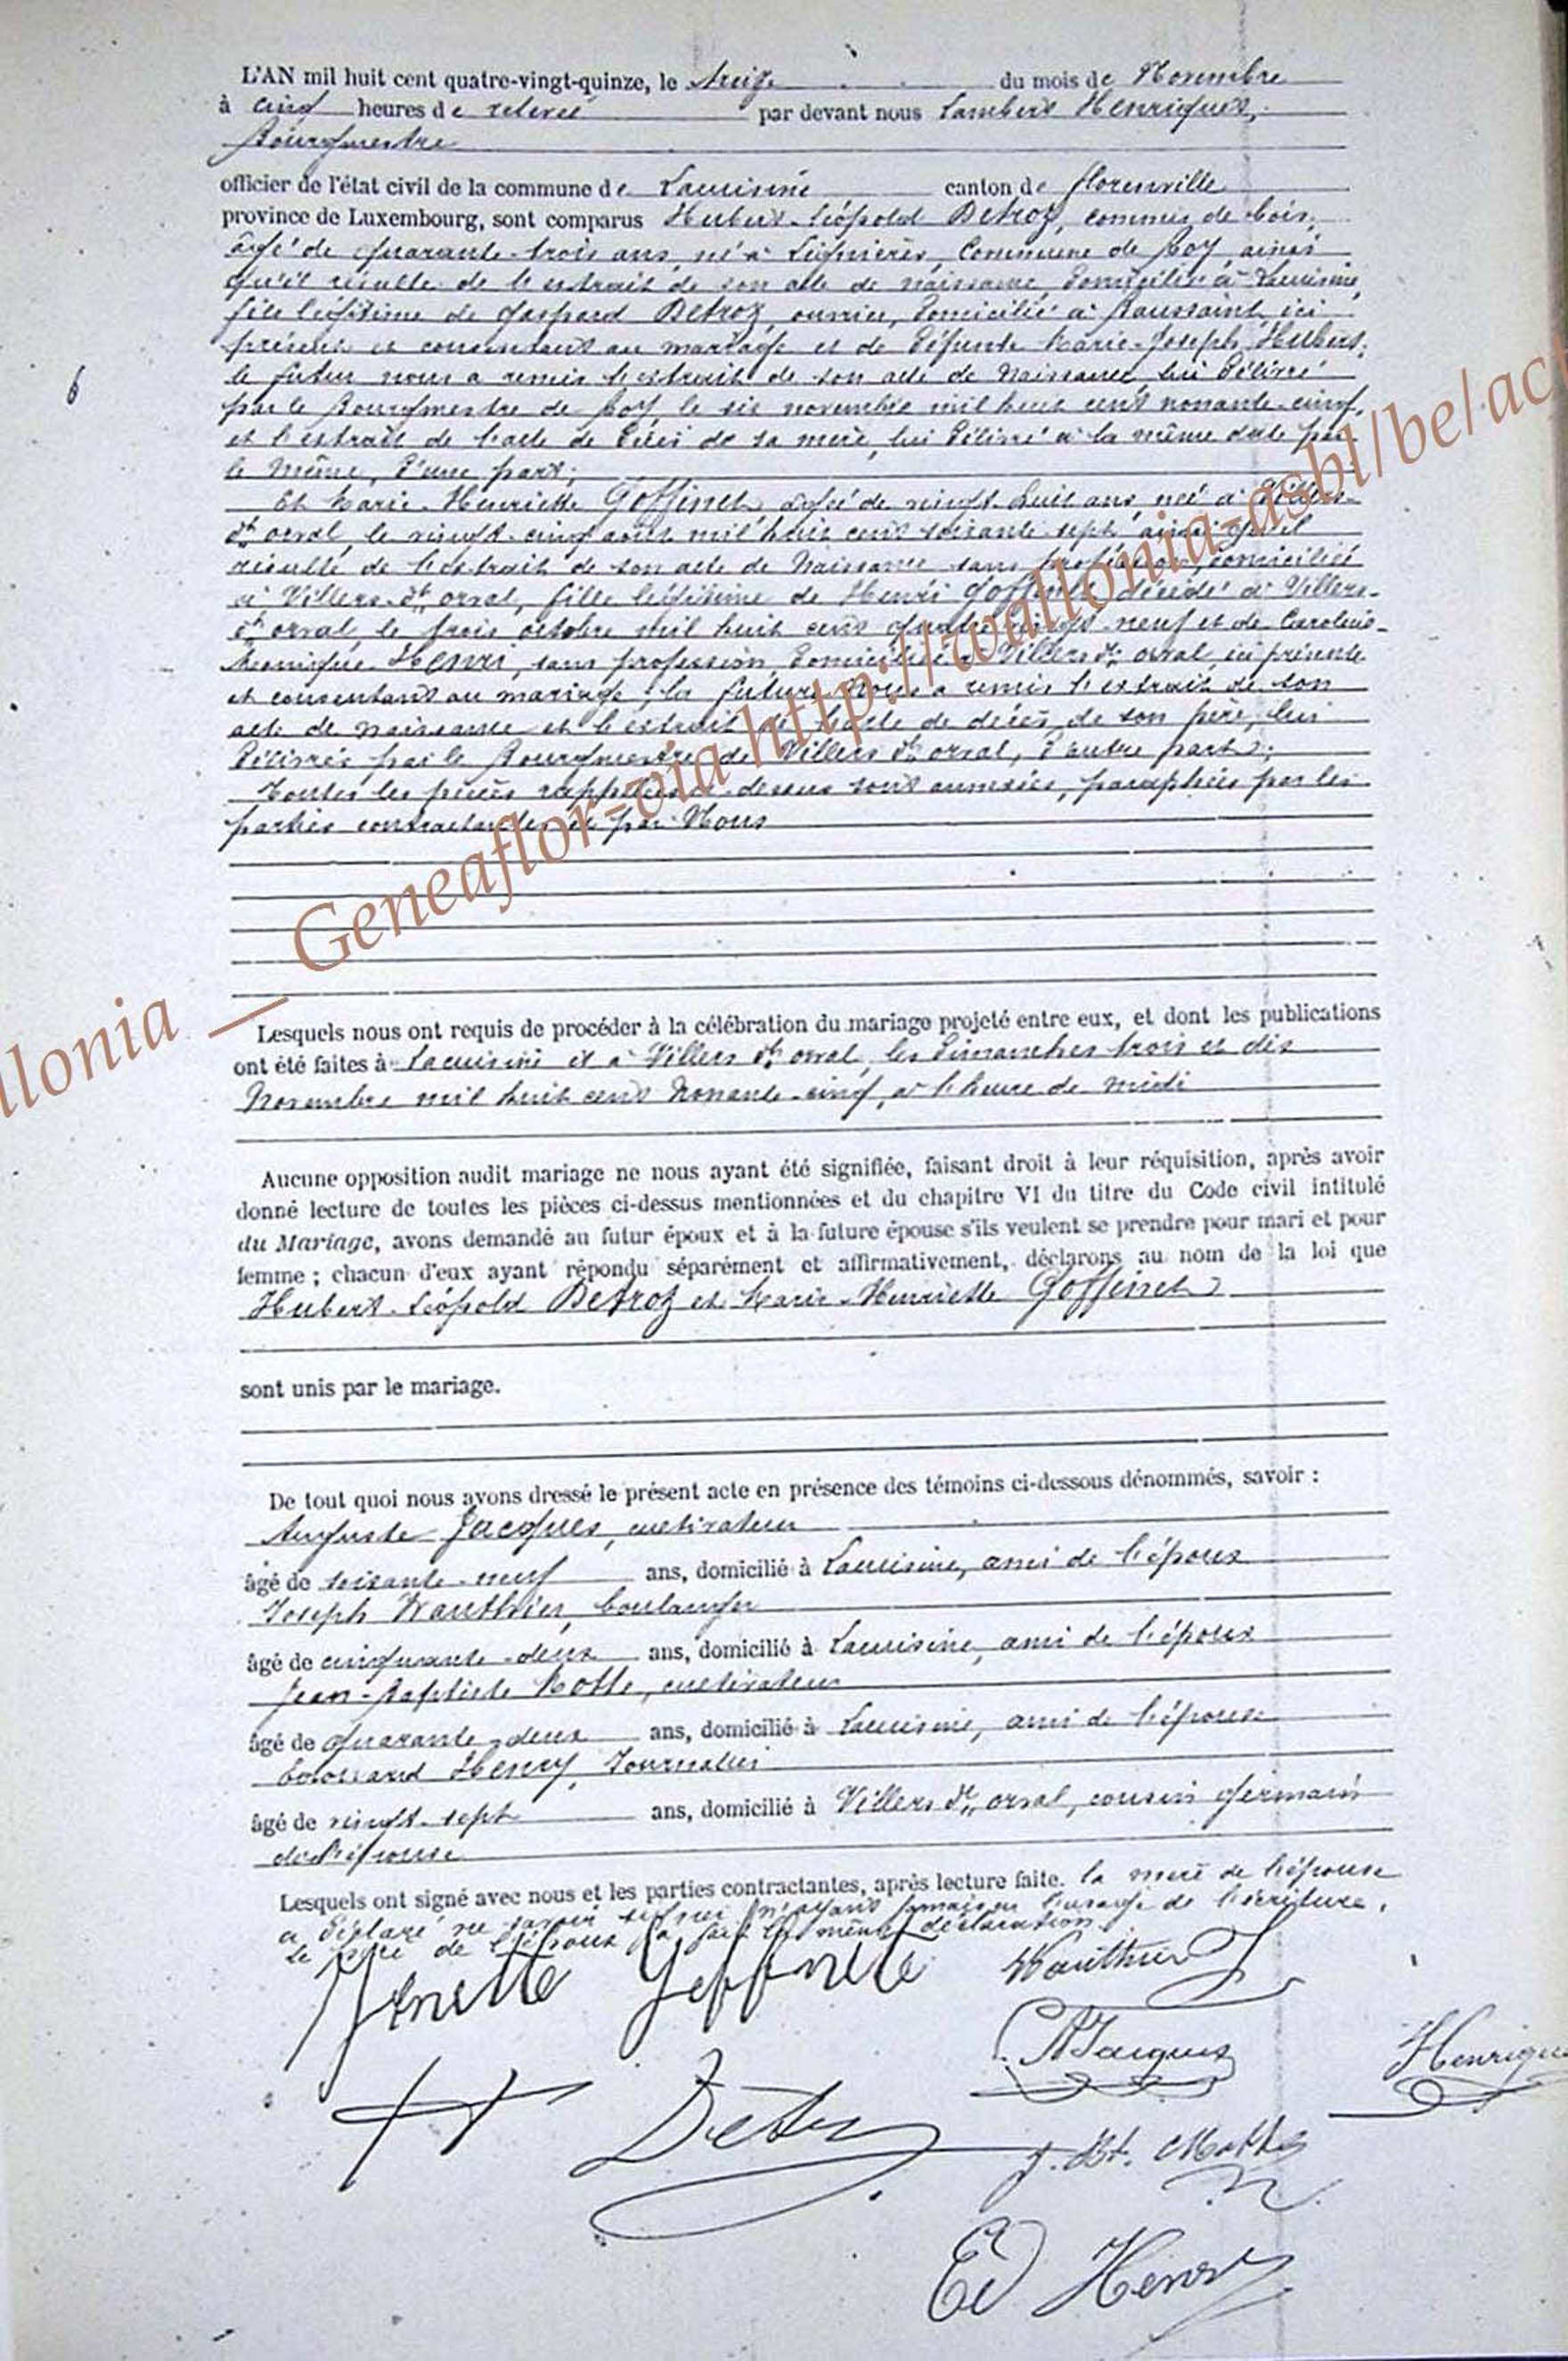 L'AN mil huit cent quatre-vingt-quinze, le treize du mois de Novembre
à cinq heures de relevée par devant nous Lambert Henriquet,
Bourgmestre
officier de l'état civil de la commune de Lacuisine canton de florenville
province de Luxembourg, sont comparus Hubert-Léopold Detroz, commis de bois,
âgé de quarante-trois ans, né à Lignières, Commune de Roy, ainsi
qu'il résulte de l'extrait de son acte de naissance, domicilié à Lacuisine,
fils légitime de Gaspard Detroz, ouvrier, domicilié à ici
présent et consentant au mariage et de défunte Marie-Joseph Hubert,
le futur nous a remis l'extrait de son acte de Naissance, lui délivré
par le Bourgmestre de Roy, le six novembre mil huit cent nonante-cinq,
et l'extrait de l'acte de décès de sa mère, lui délivré à la même date par
le même, d'une part;
Et Marie-Henriette Goffinet, âgée de vingt-huit ans, née à Villers-
dt orval, le vingt-cinq août mil huit cent soixante-sept, ainsi qu'il
résulte de l'extrait de son acte de Naissance, sans profession, domiciliée
à Villers-dt orval, fille légitime de Henri Goffinet, décédé à Villers-
dt orval, le trois octobre mil huit cent quatre-vingt-neuf et de Caroline-
Henri, sans profession, domiciliée à Villers dt orval, ici présente
et consentant au mariage; la future Nous a remis l'extrait de son
acte de naissance et l'extrait de l'acte de décès de son père, lui
délivrés par le Bourgmestre de Villers dt orval, d'autre part;
Toutes les pièces rappelées ci-dessus sont annexées, paraphées par les
parties contractantes et par Nous
Lesquels nous ont requis de procéder à la célébration du mariage projeté entre eux, et dont les publications
ont été faites à Lacuisine et à Villers dt orval, les dimanches trois et dix
Novembre mil huit cent Nonante-cinq, à l'heure de midi
Aucune opposition audit mariage ne nous ayant été signifiée, faisant droit à leur réquisition, après avoir
donné lecture de toutes les pièces ci-dessus mentionnées et du chapitre VI du titre du Code civil intitulé
du Mariage, avons demandé au futur époux et à la future épouse s'ils veulent se prendre pour mari et pour
femme ; chacun d'eux ayant répondu séparément et affirmativement, déclarons au nom de la loi que
Hubert-Léopold Detroz et Marie-Henriette Goffinet
sont unis par le mariage.
De tout quoi nous avons dressé le présent acte en présence des témoins ci-dessous dénommés, savoir :
Auguste Jacques, cultivateur
âgé de soixante-neuf ans, domicilié à Lacuisine, ami de l'époux
Joseph Wauthier, boulanger
âgé de cinquante-deux ans, domicilié à Lacuisine, ami de l'époux
Jean-Baptiste Motte, cultivateur
âgé de quarante-deux ans, domicilié à Lacuisine, ami de l'épouse
Edouard Henry, Journalier
âgé de vingt-sept ans, domicilié à Villers dt orval, cousin germain
de l'épouse
Lesquels ont signé avec nous et les parties contractantes, après lecture faite. la mère de l'épouse
a déclaré ne savoir signer n'ayant jamais eu l'usage de l'écriture.
Le père de l'époux a fait la même déclaration.
Henriette Goffinet Wauthier J
A Jacques
Henriquet
Detroz
J. Bt. Motte
Ed Henry
6
llonia __ Geneaflor-via http://wallonia-asbl/be/act